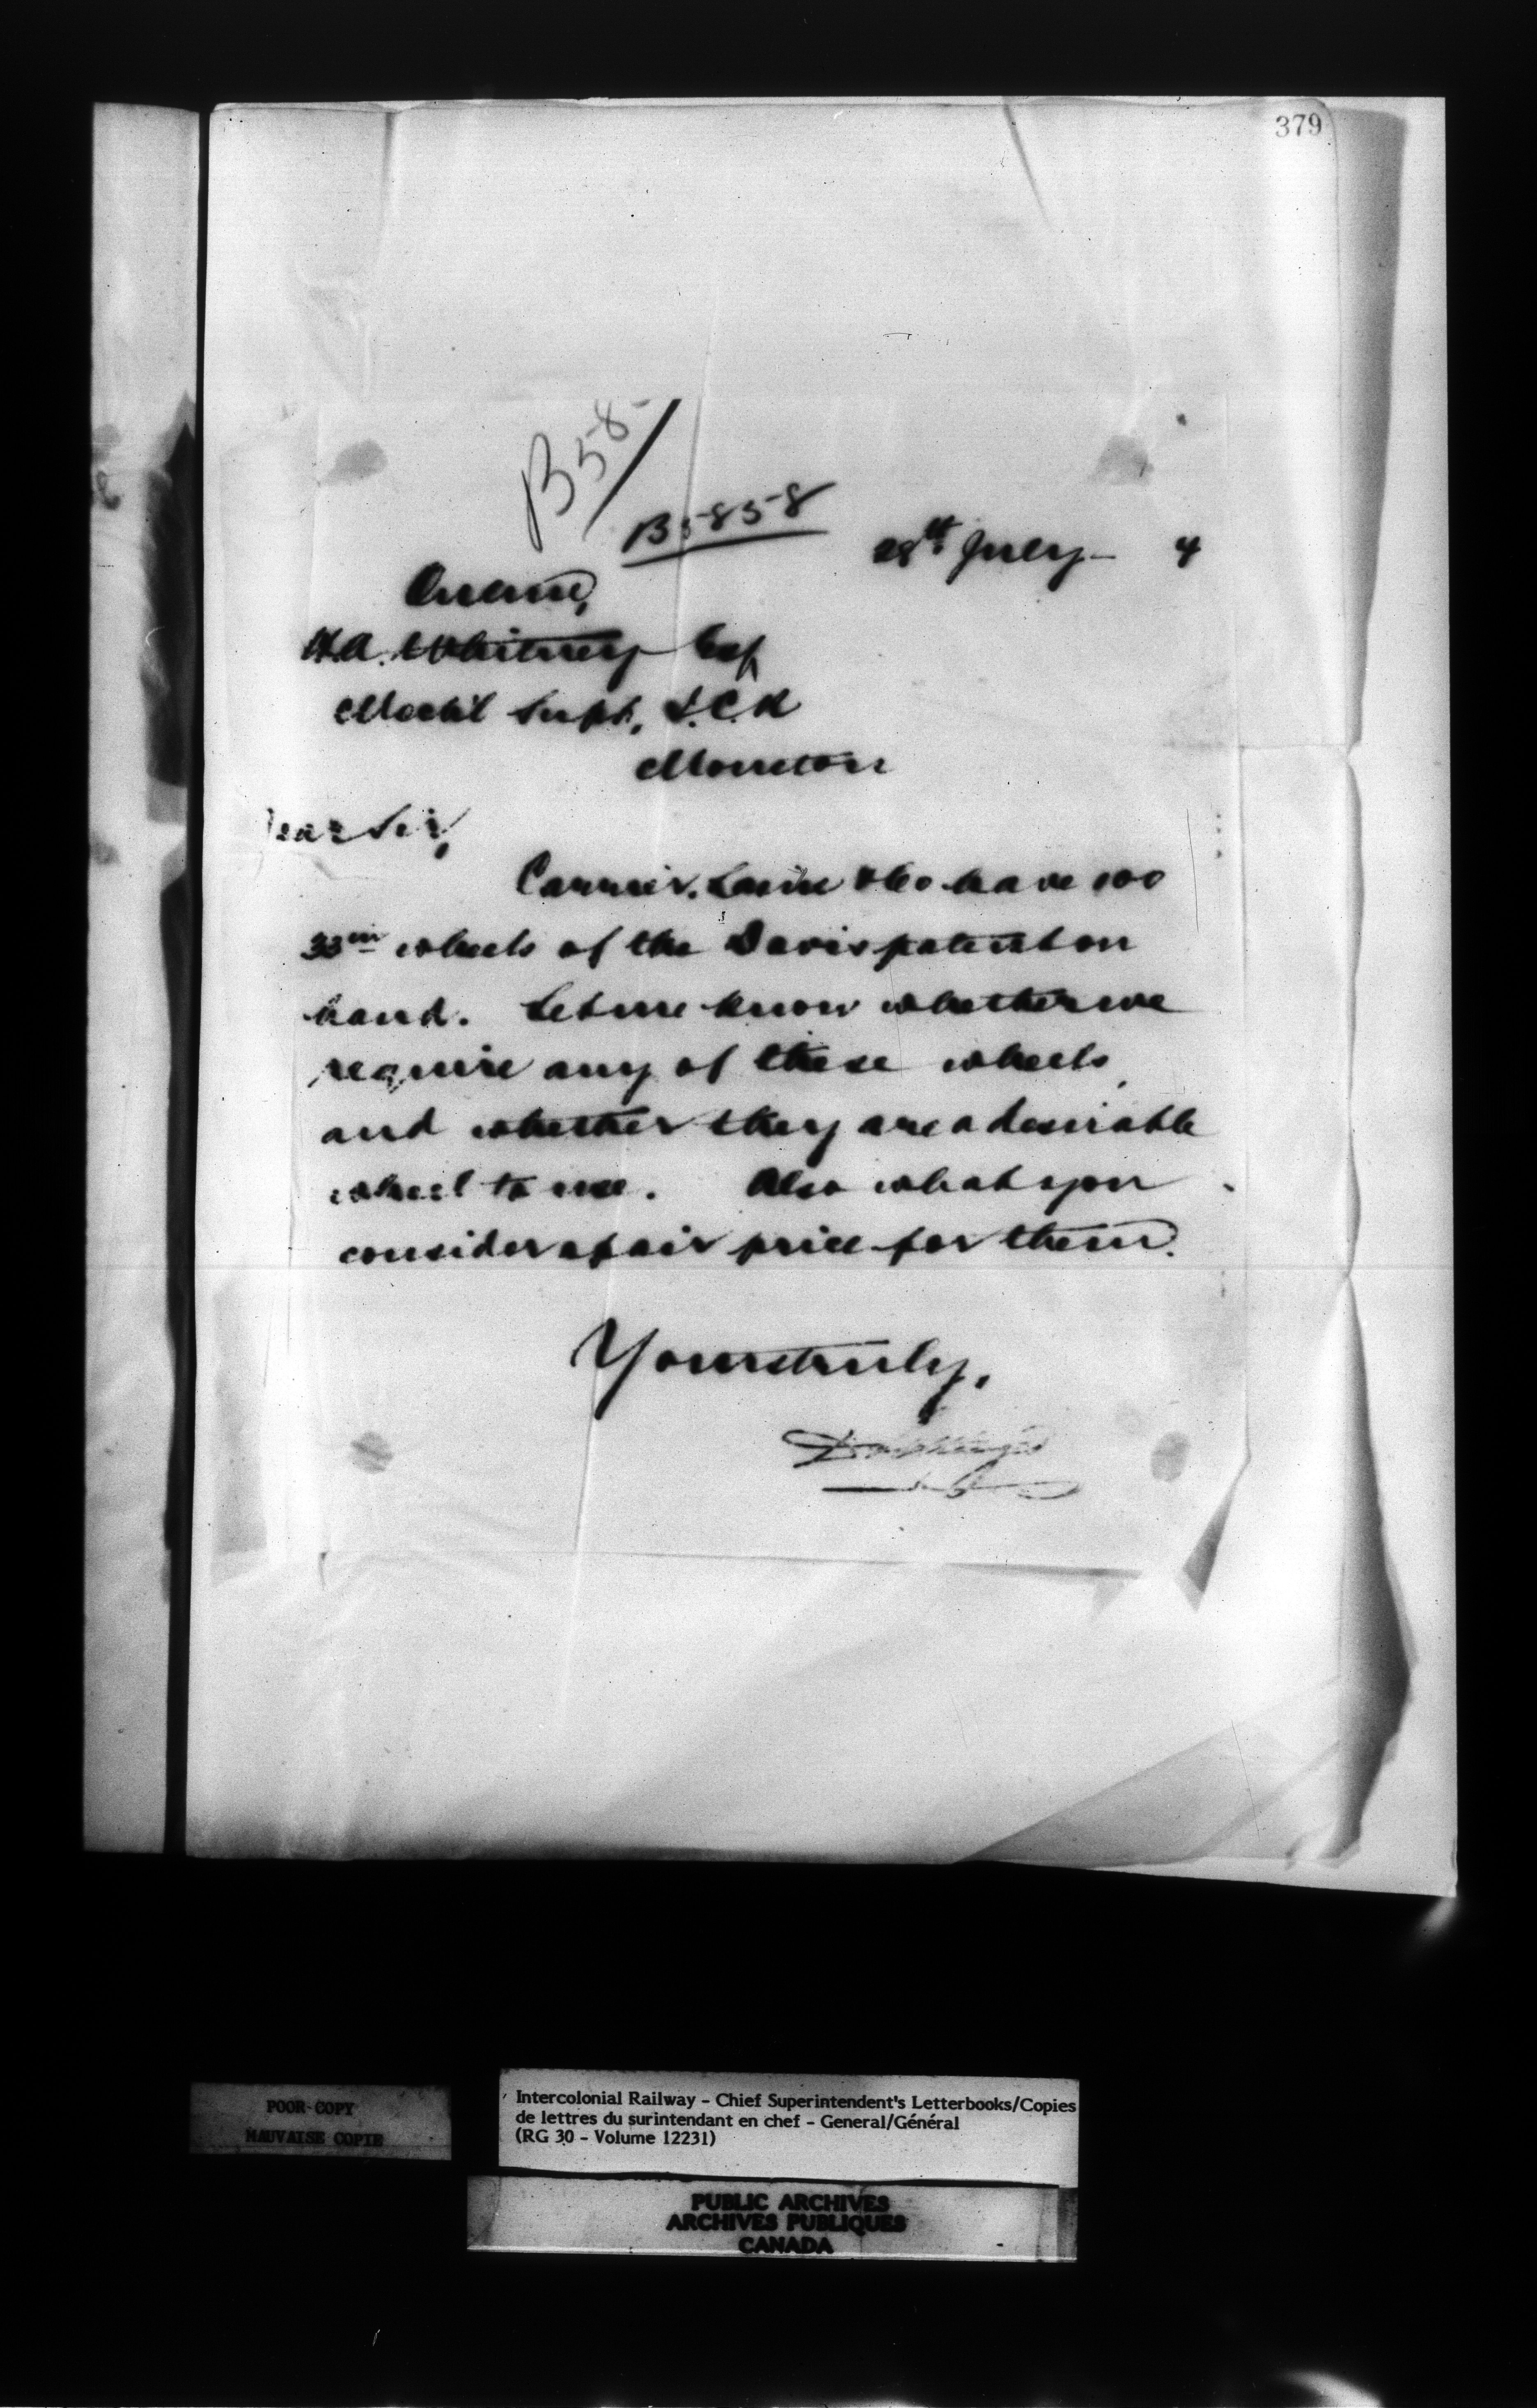 379
B58
B5858
28th July - 4
H.A. Whitney Esq
Mech'l Supt, I.C.R
Moncton
Dear Sir,
Carrier, Laine & Co have 100
33in wheels of the Davis patent on
hand. Let me know whether we
require any of these wheels,
and whether they are a desirable
wheel to use. Also what you
consider a fair price for them.
Yours truly,
POOR COPY
MAUVAISE COPIE
Intercolonial Railway - Chief Superintendent's Letterbooks/Copies
de lettres du surintendant en chef - General/Général
(RG 30 - Volume 12231)
PUBLIC ARCHIVES
ARCHIVES PUBLIQUES
CANADA